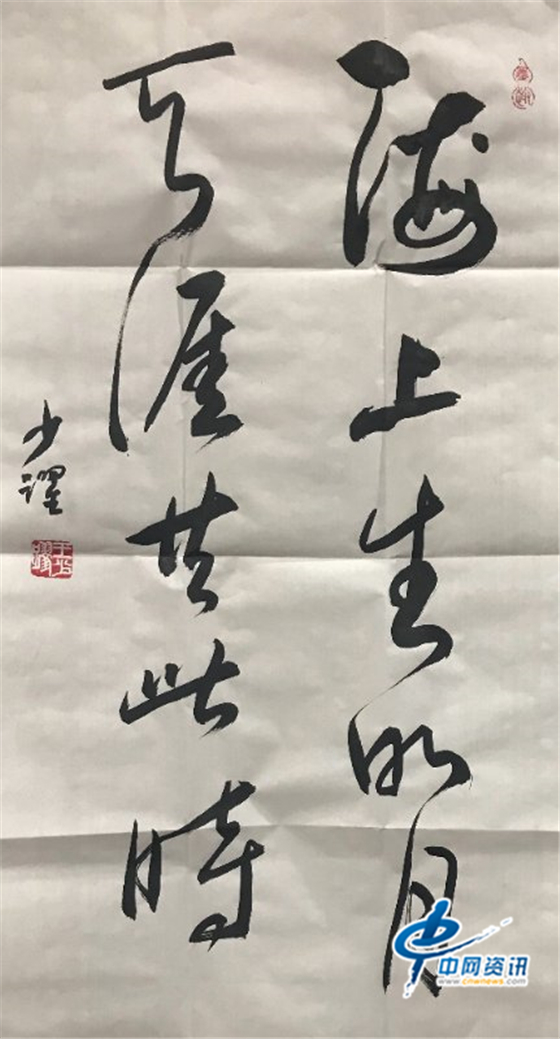 海上生明月
天涯共此時
少躍
中网资讯
www.cnwnews.com